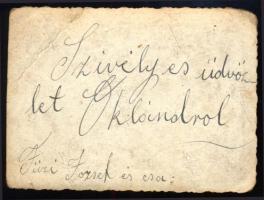 Szivélyes üdvöz
let Oklándrol
Füzi József és csa: